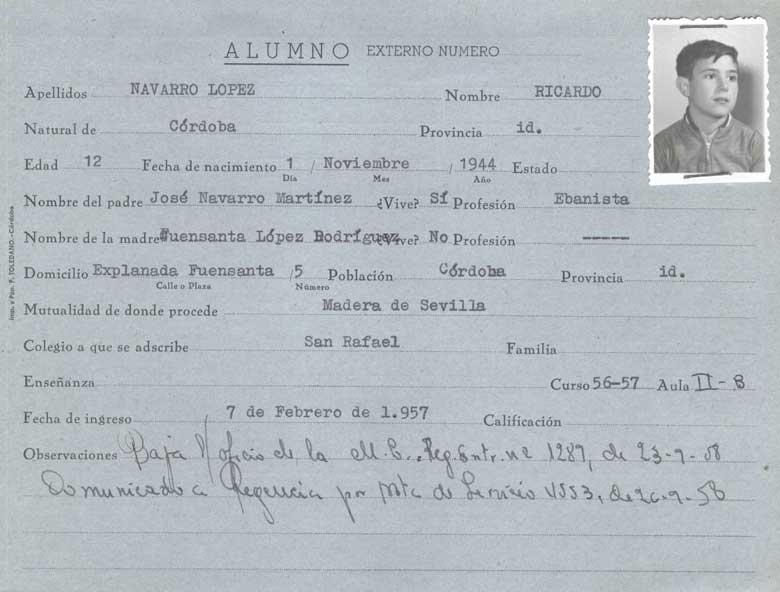 ALUMNO EXTERNO NUMERO
Apellidos NAVARRO LOPEZ Nombre RICARDO
Natural de Córdoba Provincia id.
Edad 12 Fecha de nacimiento 1 / Noviembre / 1944 Estado
Día Mes Año
Nombre del padre José Navarro Martínez ¿Vive? Sí Profesión Ebanista
Nombre de la madre Fuensanta López Rodríguez ¿Vive? No Profesión -----
Domicilio Explanada Fuensanta /5 Población Córdoba Provincia id.
Calle o Plaza Número
Mutualidad de donde procede Madera de Sevilla
Colegio a que se adscribe San Rafael Familia
Enseñanza Curso 56-57 Aula II-B
Fecha de ingreso 7 de Febrero de 1.957 Calificación
Observaciones Baja oficio de la M.E. Reg. Entr. nº 1287, de 23-9-58
Comunicado a Regencia por Nota de Servicio de 26-9-58
Imp. y Pap. F. TOLEDANO.-Córdoba